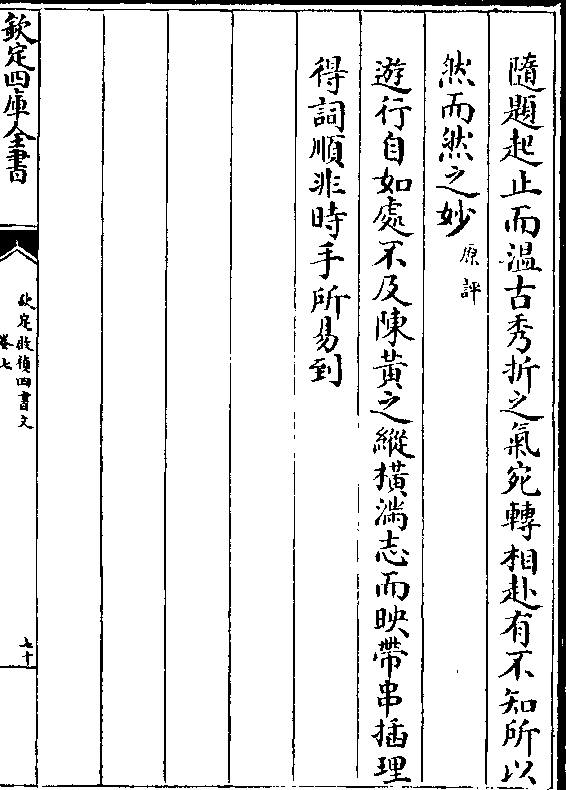 隨題起止而溫古秀折之氣宛轉相赴有不知所以
然而然之妙原評
遊行自如處不及陳黃之縱橫滿志而映帶串揷理
得詞順非時手所易到
欽定四庫全書
欽定啟禎四書文
卷七
七十